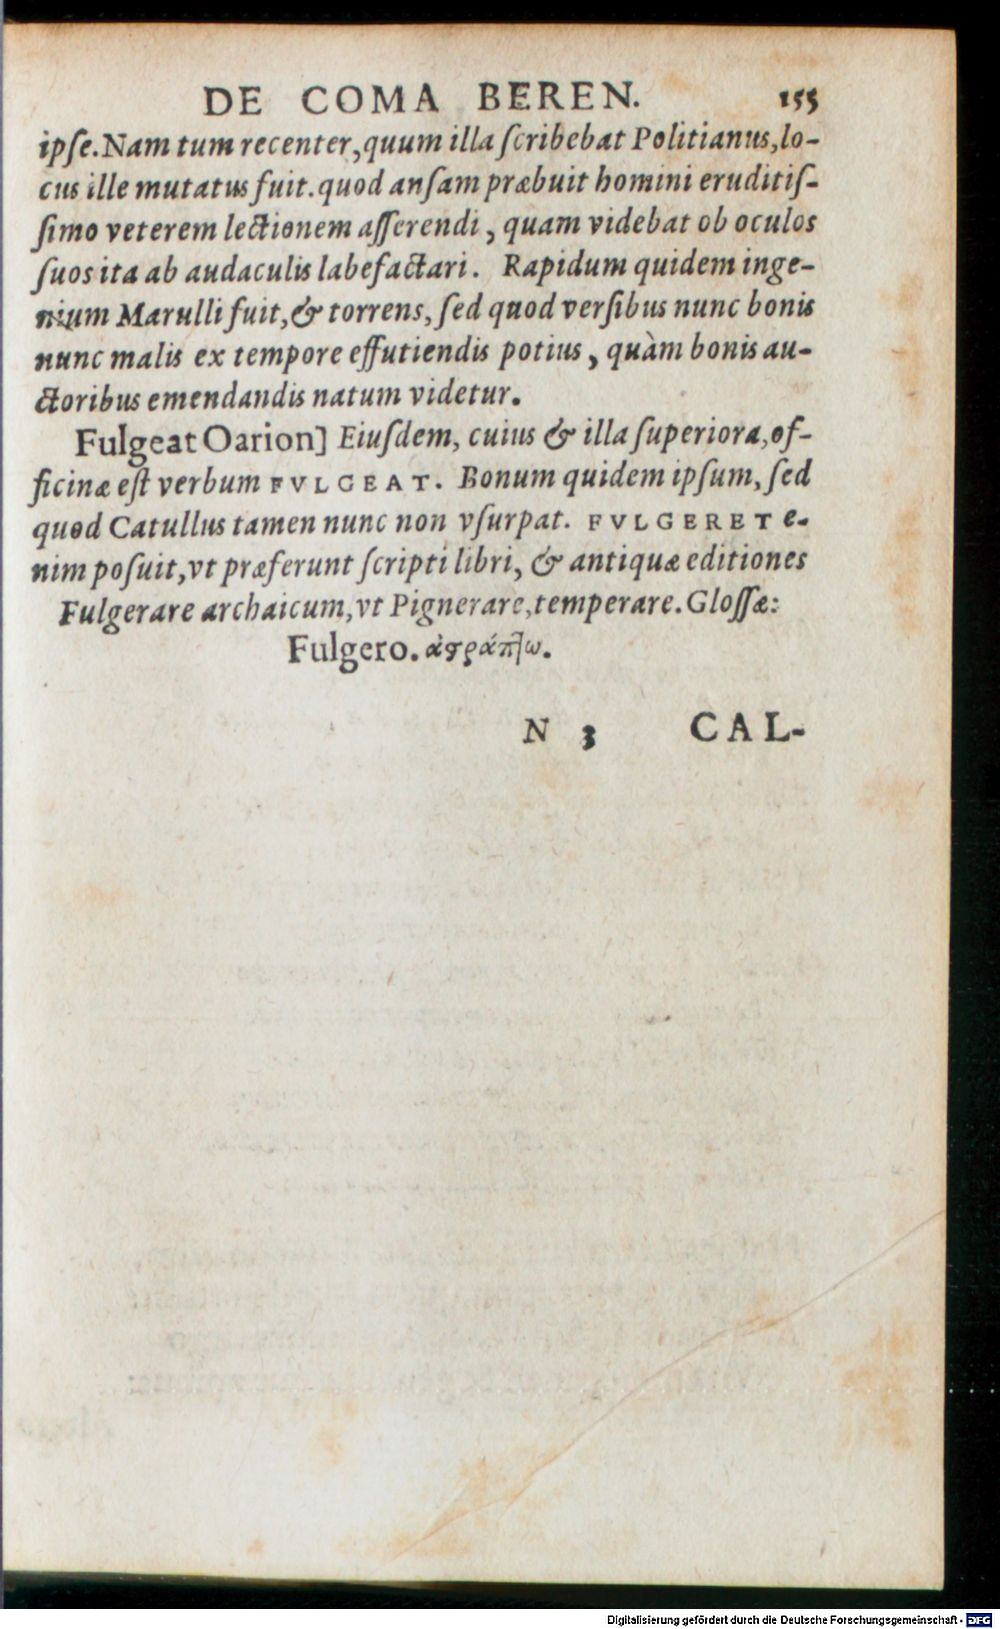 DE COMA BEREN. 155
ipſe. Nam tum recenter, quum illa ſcribebat Politianus, lo-
cus ille mutatus fuit. quod anſam præbuit homini eruditiſ-
ſimo veterem lectionem aſſerendi, quam videbat ob oculos
ſuos ita ab audaculis labefactari. Rapidum quidem inge-
nium Marulli fuit, & torrens, ſed quod verſibus nunc bonis
nunc malis ex tempore effutiendis potius, quàm bonis au-
ctoribus emendandis natum videtur.
Fulgeat Oarion] Eiuſdem, cuius & illa ſuperiora, of-
ficinæ eſt verbum FVLGEAT. Bonum quidem ipſum, ſed
quod Catullus tamen nunc non vſurpat. FVLGERET e-
nim poſuit, vt præferunt ſcripti libri, & antiquæ editiones
Fulgerare archaicum, vt Pignerare, temperare. Gloſſæ:
Fulgero. ἀςράπτω.
N 3 CAL-
Digitalisierung gefördert durch die Deutsche Forschungsgemeinschaft - DFG